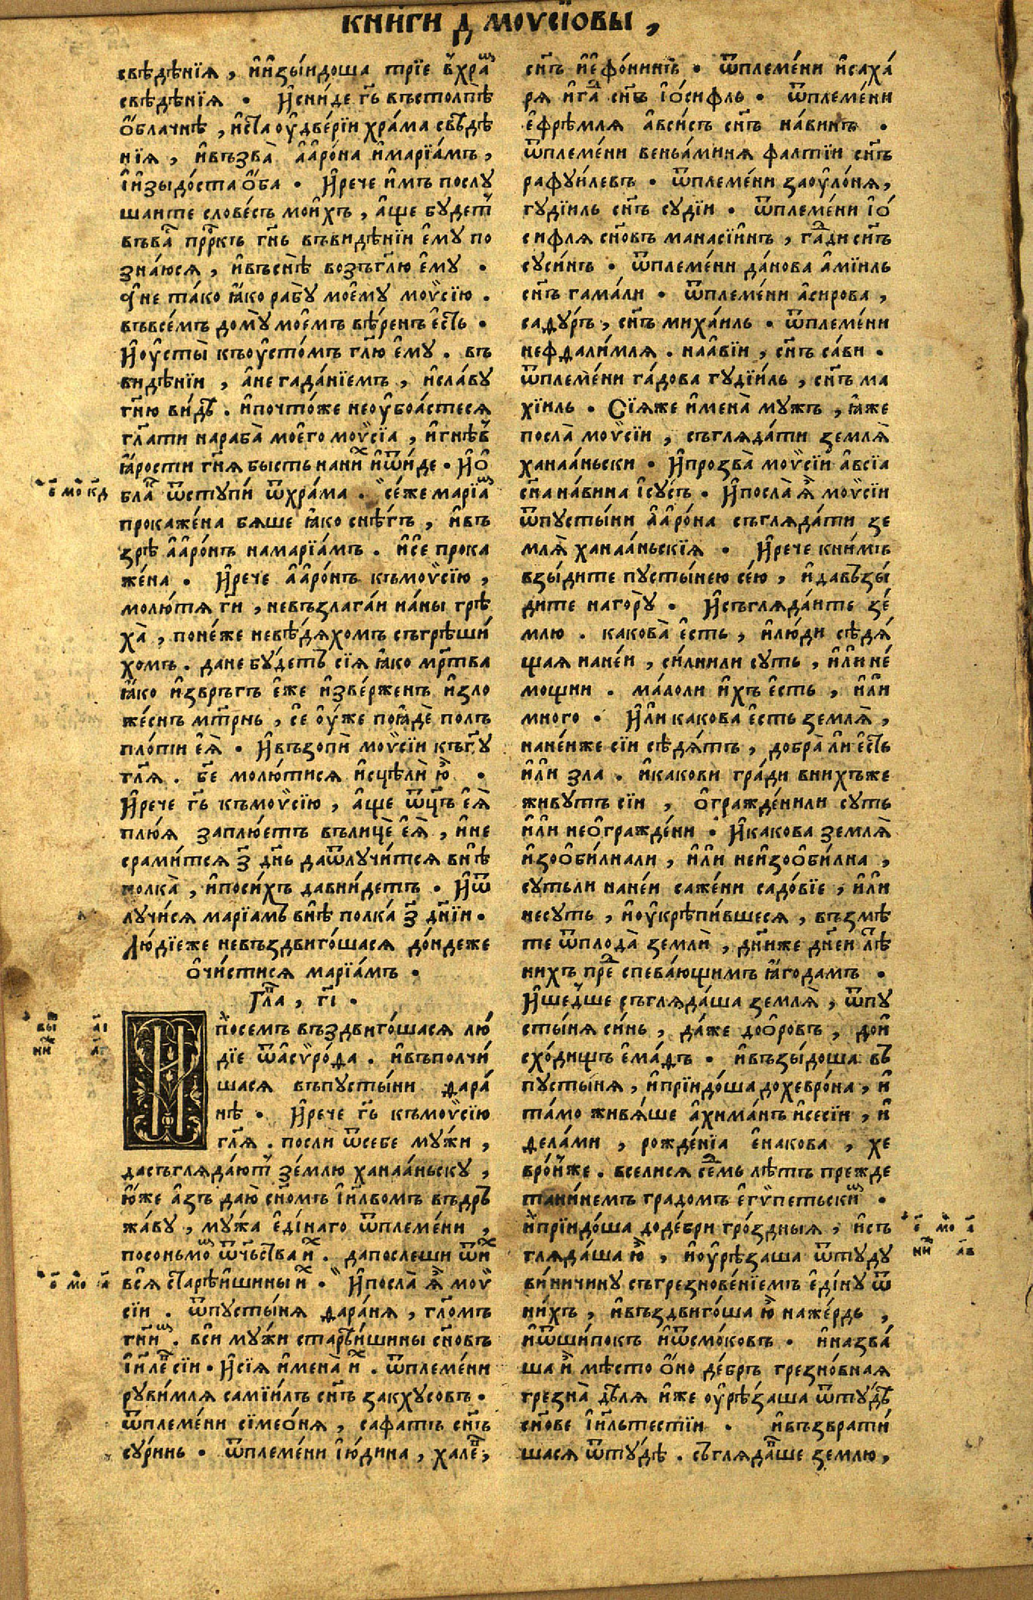 книги д҃ моѵсїовы ,
свѣдѣнїа , и҆изыидоша трїе в̾хра́м
свѣдѣнїа . И҆сни́де г҃ь въстолпѣ
о҆́блачнѣ , и҆ста оу҆двери́и хра́ма свѣ́дѣ
нїа , и҆възва̀ а҆аро́на и҆марїа́мъ ,
и҆изыдо́ста о҆́ба . И҆рече и҆мъ послу
шаите слове́съ мои́хъ , а҆́ще будет
въва́с прⷪ҇ркъ гн҃ь въвидѣ́нїи е҆му по
зна́юся , и҆въснѣ̀ возъгл҃ю е҆му .
и҆ не та́ко ꙗ҆́ко рабу̀ моему моѷсїю .
въвсе́мъ дому̀ моемъ вѣ́ренъ е҆́сть .
И҆оу҆сты̀ къоу҆сто́мъ гл҃ю е҆му . въ
видѣ́нїи , а҆не гада́нїемъ , и҆сла́ву
гн҃ю ви́дѣ . и҆почто́же неоу҆боа́стеся
гл҃ати нараба̀ моего̀ моѷсїа , и҆гнѣ́в
ꙗ҆́рости гн҃я бысть нани́х и҆ѿи́де . И҆о҆́
бла́к ѿступи ѿхра́ма . се́же марїа́м
прокаже́на бяше ꙗ҆́ко снѣ́гъ , и҆въ
зрѣ̀ а҆аро́нъ намарїа́мъ . и҆се прока
же́на . И҆рече а҆аро́нъ къмоѷсїю ,
молю́тя ги҃ , невъзлага́и на́ны грѣ
ха̀ , поне́же невѣ́дяхомъ съгрѣши́
хомъ . дане бу́детъ сїя ꙗ҆́ко мр҃тва
ꙗ҆́ко и҆звръгъ е҆́же и҆зве́рженъ и҆зло
же́снъ мт҃рнь , се оу҆́же поꙗ҆дѐ полъ
пло́ти е҆я̀ . И҆възопѝ моѷсїи къгу҃
гл҃я . бж҃е молю́тися и҆сцѣлѝ ю҆̀ .
И҆рече г҃ь къмоѷсїю , а҆́ще ѿц҃ъ е҆я̀
плю́я заплю́етъ влицѐ е҆я̀ , и҆не
срами́тся з҃ дн҃ь даѿлучи́тся внѣ̀
полка̀ , и҆поси́хъ давни́детъ . И҆ѿ
лучи́ся марїа́мъ внѣ̀ полка̀ з҃ дн҃їи .
Лю́дїеже невъздвиго́шася до́ндеже
о҆чи́стися марїа́мъ .
Гла , г҃і .
И҆посемъ въздвиго́шася лю
дїе ѿа҆сѷро́ѳа . и҆въполчи́
шася въпусты́ни ѳара́
нѣ . И҆рече г҃ь къмоѷсїю
гл҃я . посли ѿсебе му́жи ,
дасъгляда́ют зе́млю ханаа́ньску ,
ю҆́же а҆́зъ даю̀ сн҃омъ і҆и҃лвомъ въдръ
жа́ву , му́жа е҆ди́наго ѿплеме́ни ,
посоньмо́м ѿч҃ьства и҆́х . дапослеши ѿни́х
вся старѣ́ишины и҆́х . И҆посла̀ я҆̀ моѷ
сїи . ѿпусты́ня ѳара́ня , гл҃омъ
гн҃им . вси му́жи старѣ́ишины сн҃овъ
і҆и҃ле́в сїи . И҆сїя и҆мена̀ и҆́х . ѿплеме́ни
руви́мля самїи́лъ сн҃ъ закхусовъ .
ѿплеме́ни сїмео́ня , сафатъ сн҃ъ
су́ринь . ѿплеме́ни і҆ю́дина , хале́в ,
сн҃ъ и҆ефо́нинъ . ѿплеме́ни и҆саха́
ря и҆га́л сн҃ъ і҆о́сифль . ѿплеме́ни
е҆фре́мля а҆всисъ сн҃ъ на́винъ .
ѿплеме́ни веньами́ня фалтїи сн҃ъ
рафуи́левъ . ѿплеме́ни заоуло́ня ,
гудїи́ль сн҃ъ суді́и . ѿплеме́ни і҆о́
сифля сн҃овъ манасїинъ , га́дди сн҃ъ
суси́нъ . ѿплеме́ни да́нова а҆мїиль
сн҃ъ гама́ли . ѿплеме́ни а҆си́рова ,
саѳуръ , сн҃ъ миха́иль . ѿплеме́ни
неѳѳали́мля . наа҆вїи , сн҃ъ са́ви .
ѿплеме́ни га́дова гудїи́ль , сн҃ъ ма
хі́иль . Сїяже и҆мена̀ мужъ , ꙗ҆́же
посла̀ моѷсїи , съгляда́ти земля̀
ханаа́ньски . И҆прозва̀ моѷсїи а҆всїа
сн҃а на́вина і҆сусъ . И҆посла̀ я҆̀ моѷсїи
ѿпусты́ни а҆аро́на съгляда́ти зе
мля̀ ханаа́ньскїя . И҆рече книмъ
взы́дите пусты́нею се́ю , и҆давъзы́
дите наго́ру . И҆съгляда́ите зе́
млю . какова̀ е҆сть , и҆лю́ди сѣдя́
щая нане́и , си́лнили суть , и҆́ли не́
мощни . ма́лоли и҆́хъ е҆сть , и҆ли
много . И҆́ли какова е҆́сть земля̀ ,
нане́иже сїи сѣдя́тъ , добра̀ ли е҆́сть
и҆ли̇ зла . и҆какови гра́ди внихъже
живутъ сїи , о҆гражде́нили суть
и҆ли неогражде́ни . И҆какова земля̀
и҆зоо҆би́лнали , и҆ли неи҆зоо҆би́лна ,
сутьли нане́и саже́ни садо́вїе , и҆ли
несуть , и҆оу҆крѣпи́вшеся , възмѣ
те ѿплода̀ землѝ , дн҃иже дн҃еи лѣ́т
нихъ пре́д спева́ющимъ ꙗ҆́годамъ .
И҆ше́дше съгляда́ша земля̀ , ѿпу
сты́ня си́нь , да́же доо҆ровъ , дои
схо́дищъ е҆ма́ѳъ . и҆възы́доша въ
пусты́ня , и҆прїидо́ша дохевро́на , и҆
та́мо живя́ше а҆химанъ и҆сесїи , и҆
ѳела́ми , рожде́нїа е҆на́кова , хе
вро́нже . вселися се́дмь лѣ́тъ прежде
тани́немъ градомъ е҆гѷпетьски́м .
и҆прїидо́ша доде́бри гро́здныя , и҆съ
гляда́ша ю҆̀ , и҆оу҆рѣ́заша ѿтуду
ви́ничину съгрезнове́нїемъ е҆ди́ну ѿ
ни́хъ , и҆въздвиго́ша ю҆̀ наже́рдь ,
и҆ѿши́покъ и҆ѿсмо́ковъ . и҆назва́
ша и҆̀ мѣсто о҆но де́бръ грезно́вная
грезна̀ дѣля и҆же оу҆рѣ́заша ѿту́дѣ
сн҃ове і҆и҃льтестїи . и҆възврати́
шася ѿту́дѣ . съгляда́вше землю ,
е҃ мо к҃д
е҃ мо а҃
е҃ мо а҃